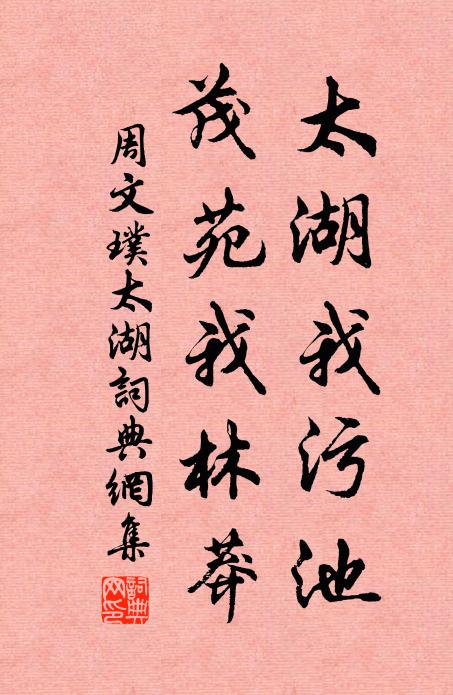 太湖我污池
茂苑我林莽
周文璞太湖詞典網集
詞典網印